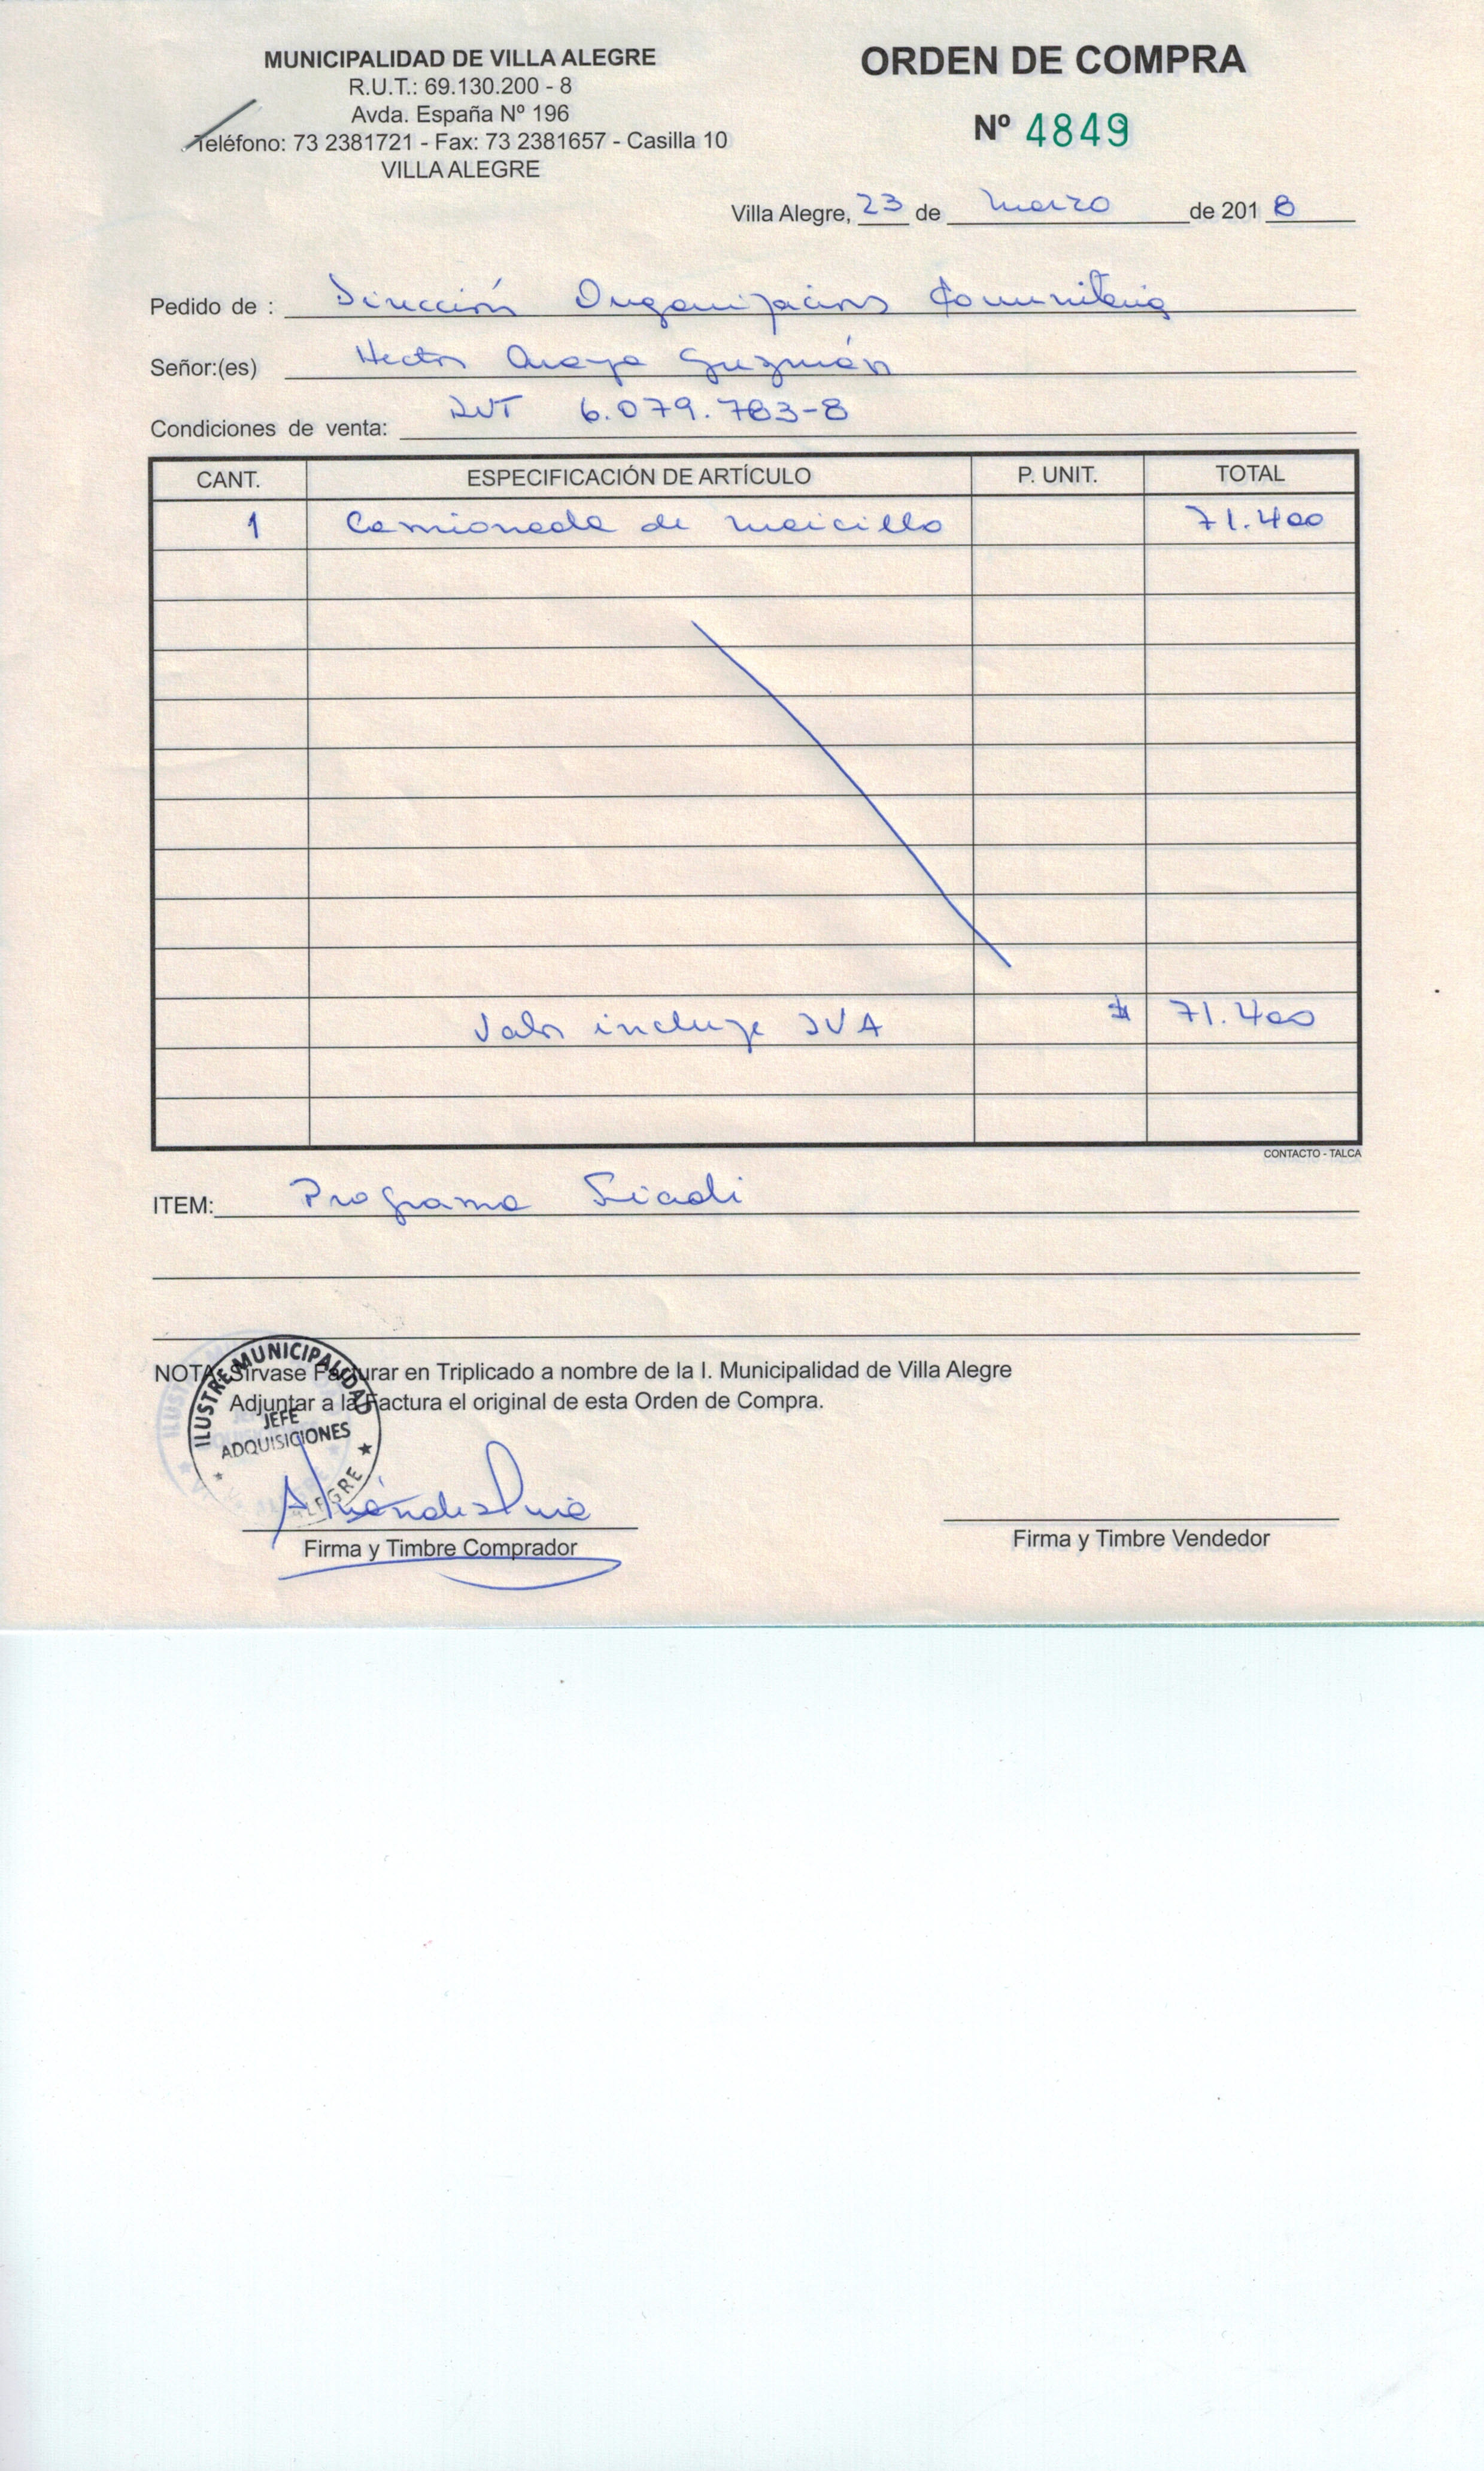 MUNICIPALIDAD DE VILLA ALEGRE
R.U.T.: 69.130.200 - 8
Avda. España Nº 196
Teléfono: 73 2381721 - Fax: 73 2381657 - Casilla 10
VILLA ALEGRE
ORDEN DE COMPRA
Nº 4849
Villa Alegre, 23 de marzo de 2018
Pedido de : Dirección Organizacions Comunitaria
Señor:(es) Hector Araya Guzmán
Condiciones de venta: RUT 6.079.783-8
CANT. ESPECIFICACIÓN DE ARTÍCULO P. UNIT. TOTAL
1 Camionada de maicillo 71.400
Valor incluye IVA $ 71.400
CONTACTO - TALCA
ITEM: Programa
NOTA: Sírvase Facturar en Triplicado a nombre de la I. Municipalidad de Villa Alegre
Adjuntar a la Factura el original de esta Orden de Compra.
ILUSTRE MUNICIPALIDAD
JEFE
ADQUISICIONES
ALEGRE
Firma y Timbre Comprador
Firma y Timbre Vendedor